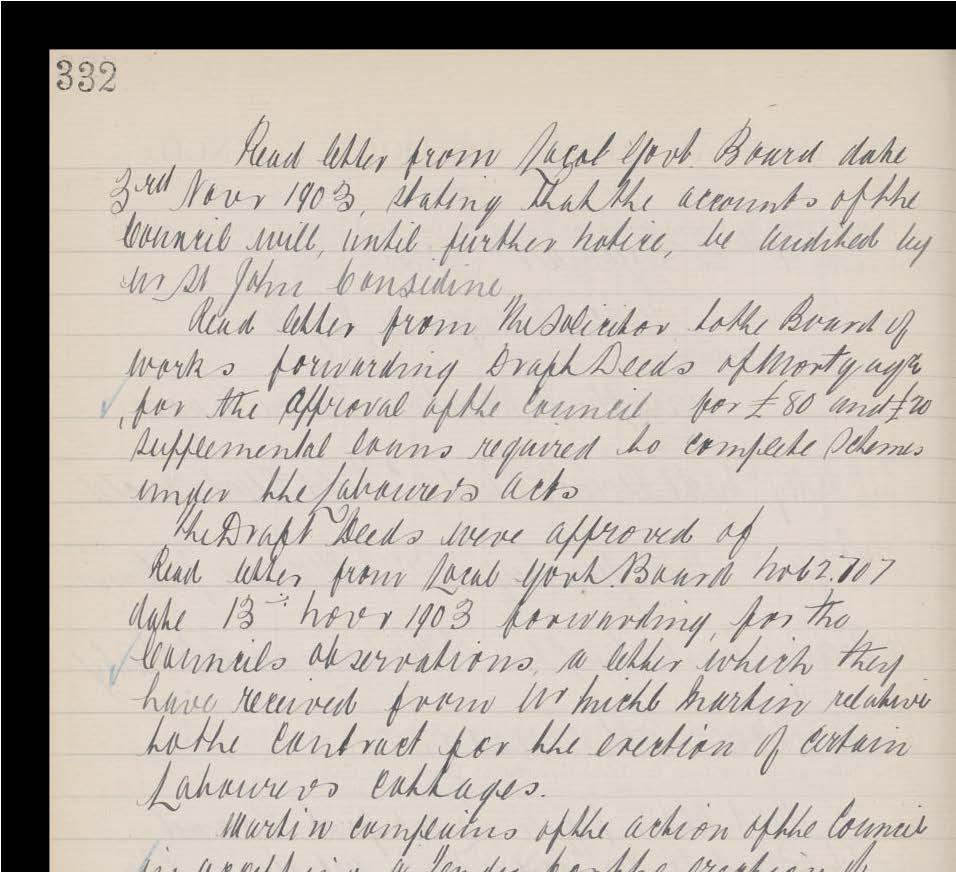 332
Read letter from Local Govt. Board date
3rd Novr 1903, stating that the accounts of the
Council will, until further notice, be audited by
Mr St John Considine
Read letter from The Solicitor to the Board of
Works forwarding Draft Deeds of Mortgage
, for the approval of the Council for £80 and £70
supplemental loans required to complete schemes
under the Labourers Acts
The Draft Deeds were approved of
Read letter from Local Govt. Board No 62.707
date 13th Novr 1903 forwarding, for the
Councils observations, a letter which they
have received from Mr Michl Martin relative
to the Contract for the erection of certain
Labourers Cottages.
Martin complains of the action of the Council
in a Tender for the erection of